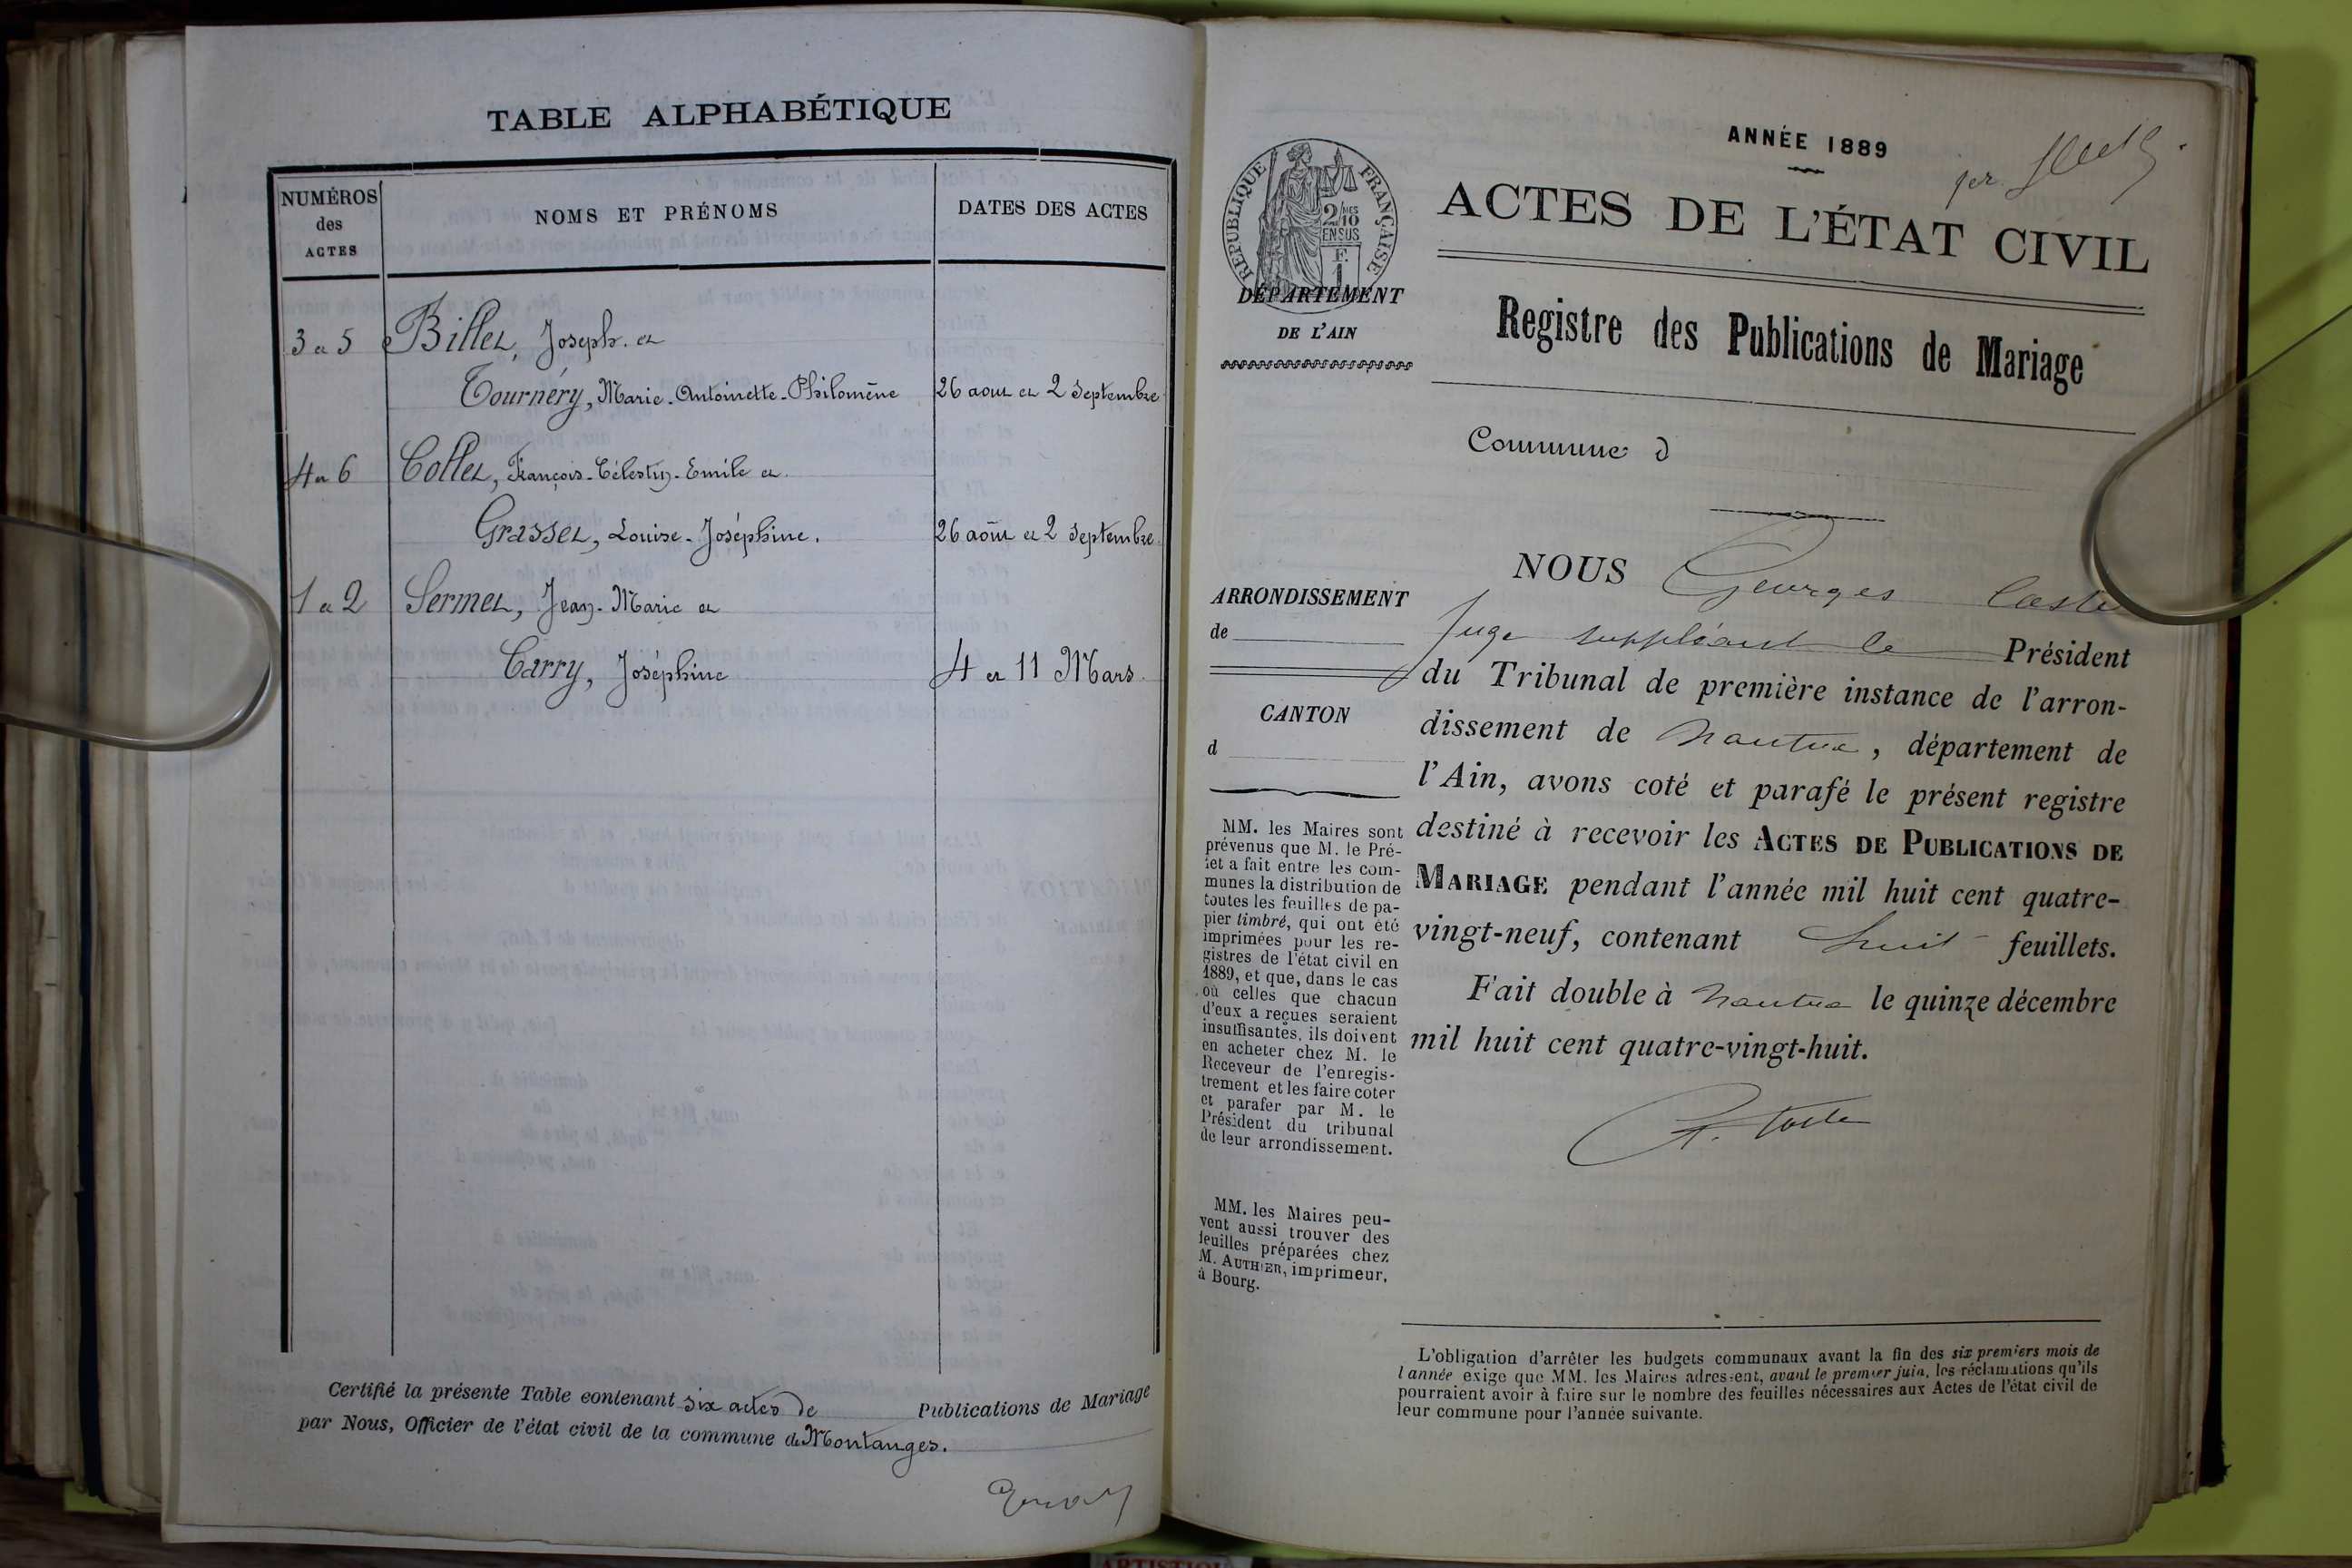 TABLE ALPHABÉTIQUE
NUMÉROS
des
ACTES
NOMS ET PRÉNOMS
DATES DES ACTES
3 et 5 Billet, Joseph. et
Tournéry, Marie-Antoinette-Philomène 26 aout et 2 Septembre
4 et 6 Collet, François-Célestin-Emile et
Grasset, Louise-Joséphine. 26 août et 2 Septembre
1 et 2 Sermet, Jean-Marie et
Carry, Joséphine 4 et 11 Mars
Certifié la présente Table contenant six actes de Publications de Mariage
par Nous, Officier de l'état civil de la commune de Montanges.
ANNÉE 1889
RÉPUBLIQUE FRANÇAISE
2/MES
10
EN SUS
F.
1
DÉPARTEMENT
DE L'AIN
ACTES DE L'ÉTAT CIVIL
Registre des Publications de Mariage
Commune d
ARRONDISSEMENT
de
CANTON
d
MM. les Maires sont
prévenus que M. le Pré-
fet a fait entre les com-
munes la distribution de
toutes les feuilles de pa-
pier timbré, qui ont été
imprimées pour les re-
gistres de l'état civil en
1889, et que, dans le cas
où celles que chacun
d'eux a reçues seraient
insuffisantes, ils doivent
en acheter chez M. le
Receveur de l'enregis-
trement et les faire coter
et parafer par M. le
Président du tribunal
de leur arrondissement.
MM. les Maires peu-
vent aussi trouver des
feuilles préparées chez
M. AUTHIER, imprimeur,
à Bourg.
NOUS Georges Coste
Juge suppléant le Président
du Tribunal de première instance de l'arron-
dissement de Nantua, département de
l'Ain, avons coté et parafé le présent registre
destiné à recevoir les ACTES DE PUBLICATIONS DE
MARIAGE pendant l'année mil huit cent quatre-
vingt-neuf, contenant huit feuillets.
Fait double à Nantua le quinze décembre
mil huit cent quatre-vingt-huit.
G. Coste
L'obligation d'arrêter les budgets communaux avant la fin des six premiers mois de
l'année exige que MM. les Maires adressent, avant le premier juin, les réclamations qu'ils
pourraient avoir à faire sur le nombre des feuilles nécessaires aux Actes de l'état civil de
leur commune pour l'année suivante.